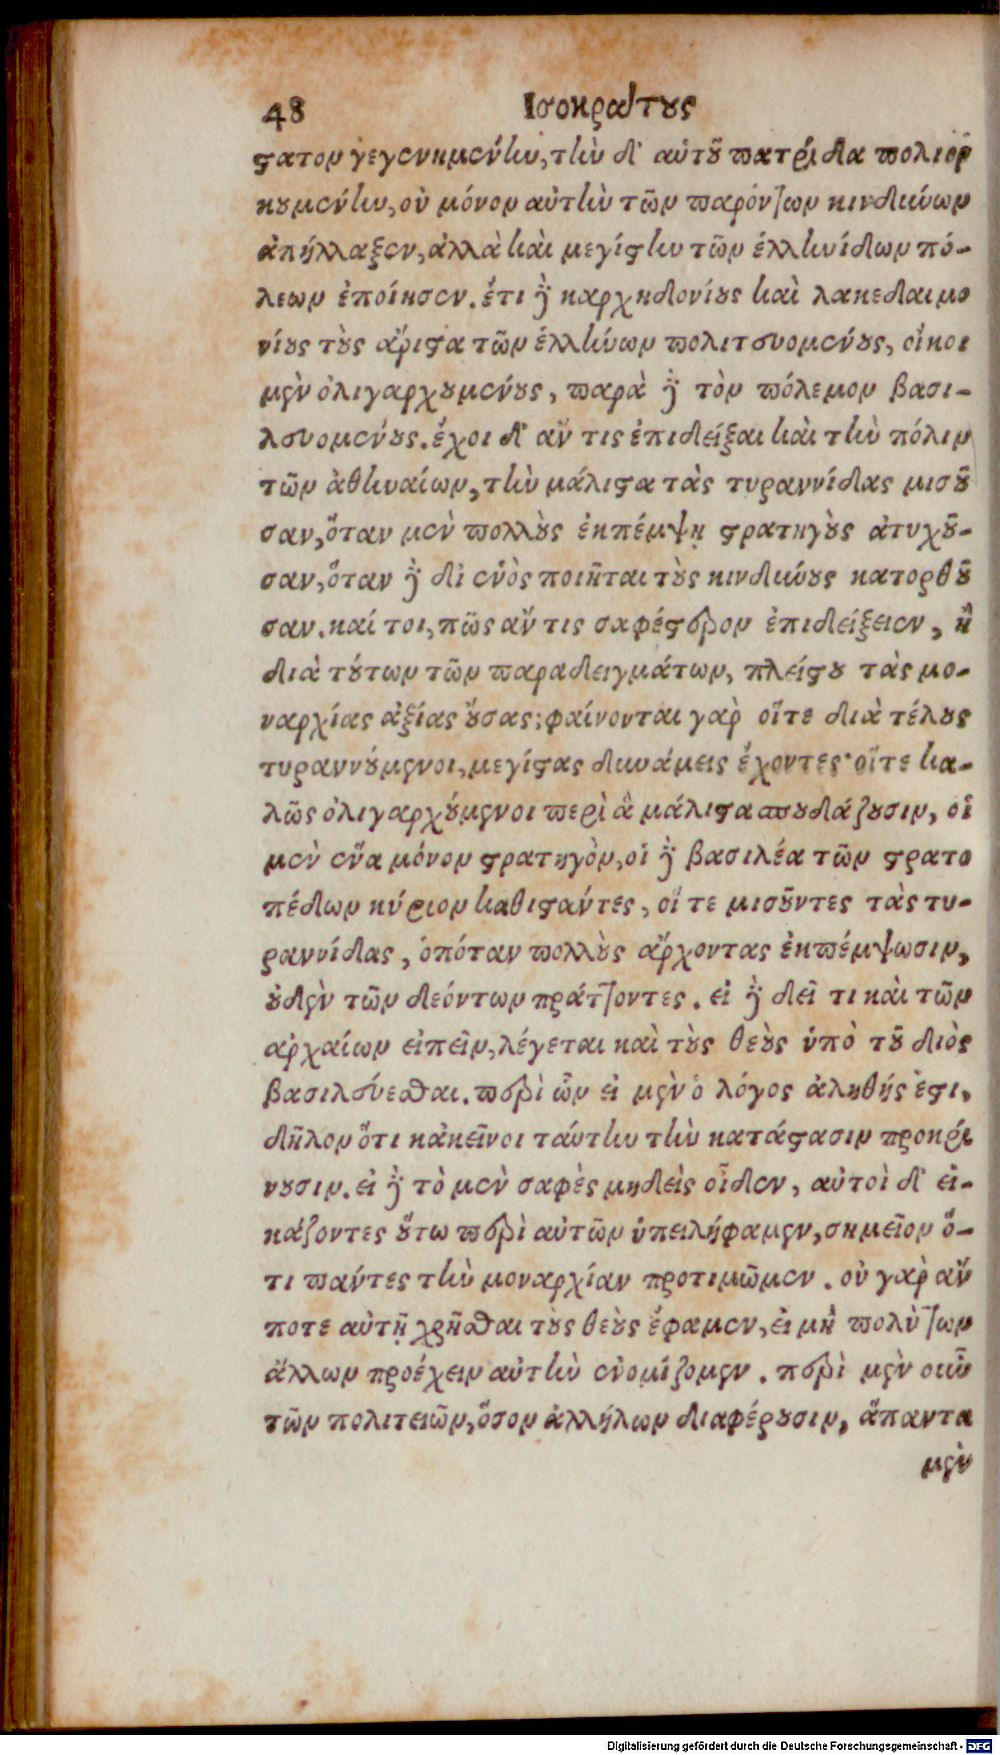 48 Ισοκράτους
στατον γεγενημένην, τὴν δ' αὑτοῦ πατρίδα πολιορ
κουμένην, οὐ μόνον αὐτὴν τῶν παρόντων κινδύνων
ἀπήλλαξεν, ἀλλὰ καὶ μεγίστην τῶν ἑλληνίδων πό-
λεων ἐποίησεν. ἔτι δὲ καρχηδονίους καὶ λακεδαιμο
νίους τοὺς ἄριστα τῶν ἑλλήνων πολιτευομένους, οἴκοι
μὲν ὀλιγαρχουμένους, παρὰ δὲ τὸν πόλεμον βασι-
λευομένους. ἔχοι δ' ἄν τις ἐπιδεῖξαι καὶ τὴν πόλιν
τῶν ἀθηναίων, τὴν μάλιστα τὰς τυραννίδας μισοῦ
σαν, ὅταν μὲν πολλοὺς ἐκπέμψῃ στρατηγοὺς ἀτυχοῦ-
σαν, ὅταν δὲ δι ἑνὸς ποιῆται τοὺς κινδύνους κατορθοῦ
σαν. καί τοι, πῶς ἄν τις σαφέστερον ἐπιδείξειεν, ἢ
διὰ τούτων τῶν παραδειγμάτων, πλείστου τὰς μο-
ναρχίας ἀξίας οὔσας; φαίνονται γὰρ οἵτε διὰ τέλους
τυραννούμενοι, μεγίστας δυνάμεις ἔχοντες· οἵτε κα-
λῶς ὀλιγαρχούμενοι περὶ ἃ μάλιστα σπουδάζουσιν, οἱ
μὲν ἕνα μόνον στρατηγὸν, οἱ δὲ βασιλέα τῶν στρατο
πέδων κύριον καθιστάντες, οἵ τε μισοῦντες τὰς τυ-
ραννίδας, ὁπόταν πολλοὺς ἄρχοντας ἐκπέμψωσιν,
οὐδὲν τῶν δεόντων πράττοντες. εἰ δὲ δεῖ τι καὶ τῶν
ἀρχαίων εἰπεῖν, λέγεται καὶ τοὺς θεοὺς ὑπὸ τοῦ διὸς
βασιλεύεσθαι. περὶ ὧν εἰ μὲν ὁ λόγος ἀληθής ἐστι,
δῆλον ὅτι κἀκεῖνοι ταύτην τὴν κατάστασιν προκρί
νουσιν. εἰ δὲ τὸ μὲν σαφὲς μηδεὶς οἶδεν, αὐτοὶ δ' εἰ-
κάζοντες οὕτω περὶ αὐτῶν ὑπειλήφαμεν, σημεῖον ὅ-
τι πάντες τὴν μοναρχίαν προτιμῶμεν. οὐ γὰρ ἄν
ποτε αὐτῇ χρῆσθαι τοὺς θεοὺς ἔφαμεν, εἰ μὴ πολὺ των
ἄλλων προέχειν αὐτὴν ἐνομίζομεν. περὶ μὲν οὖν
τῶν πολιτειῶν, ὅσον ἀλλήλων διαφέρουσιν, ἅπαντα
μὲν
Digitalisierung gefördert durch die Deutsche Forschungsgemeinschaft - DFG